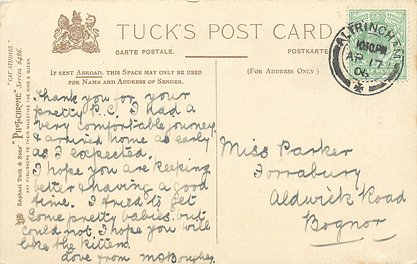 TUCK'S POST CARD
CARTE POSTALE.
POSTKARTE
IF SENT ABROAD, THIS SPACE MAY ONLY BE USED
FOR NAME AND SENDER OF SENDER.
(FOR ADDRESS ONLY.)
"CAT STUDIES."
Raphael Tuck & Sons' "PHOTOCHROME" Series 6486.
ART PUBLISHERS TO THEIR MAJESTIES THE KING & QUEEN.
ALTRINCHAM
10 PM
AP 17
Thank you for your
pretty P.C. I had a
very comfortable journey
& arrived home as early
as I expected.
I hope you are keeping
better & having a good
time. I tried to get
some pretty babies but
could not. I hope you will
like the kittens.
Love from
Miss Parker
Torrabury
Aldwick Road
Bognor